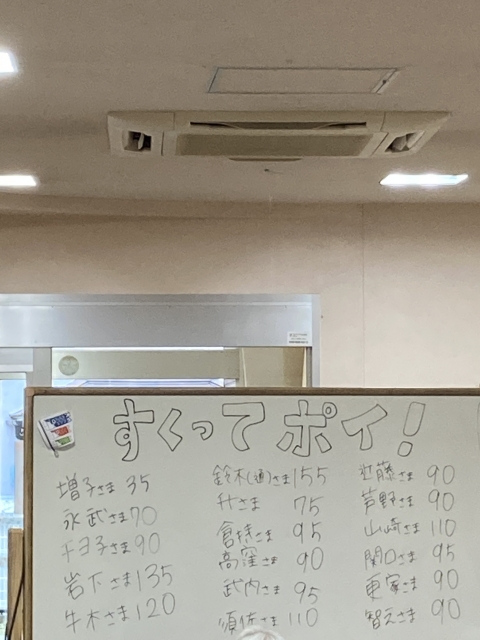 すくってポイ!
増子さま 35
永武さま 70
チヨ子さま 90
岩下さま 135
牛木さま 120
鈴木(通)さま 155
升さま 75
倉持さま 95
高窪さま 90
武内さま 95
須佐さま 110
近藤さま 90
芦野さま 90
山崎さま 110
関口さま 95
更家さま 90
智えさま 90